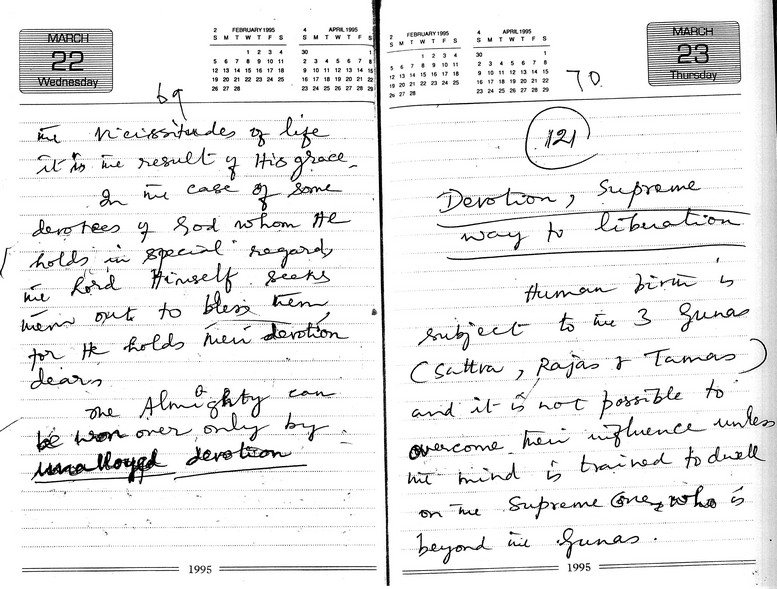 MARCH
22
Wednesday
2 FEBRUARY 1995
S M T W T F S
1 2 3 4
5 6 7 8 9 10 11
12 13 14 15 16 17 18
19 20 21 22 23 24 25
26 27 28
4 APRIL 1995
S M T W T F S
30 1
2 3 4 5 6 7 8
9 10 11 12 13 14 15
16 17 18 19 20 21 22
23 24 25 26 27 28 29
69
the Vicissitudes of life
it is the result of His grace.
In the case of some
devotees of God whom He
holds in special regard,
the Lord Himself seeks
them out to bless them
for He holds their devotion
dear.
The Almighty can
be won over only by
unalloyed devotion
1995
2 FEBRUARY 1995
S M T W T F S
1 2 3 4
5 6 7 8 9 10 11
12 13 14 15 16 17 18
19 20 21 22 23 24 25
26 27 28
4 APRIL 1995
S M T W T F S
30 1
2 3 4 5 6 7 8
9 10 11 12 13 14 15
16 17 18 19 20 21 22
23 24 25 26 27 28 29
MARCH
23
Thursday
70.
121
Devotion, Supreme
way to liberation
Human birth is
subject to the 3 Gunas
(Sattva, Rajas & Tamas)
and it is not possible to
overcome their influence unless
the mind is trained to dwell
on the Supreme One, who is
beyond the Gunas.
1995